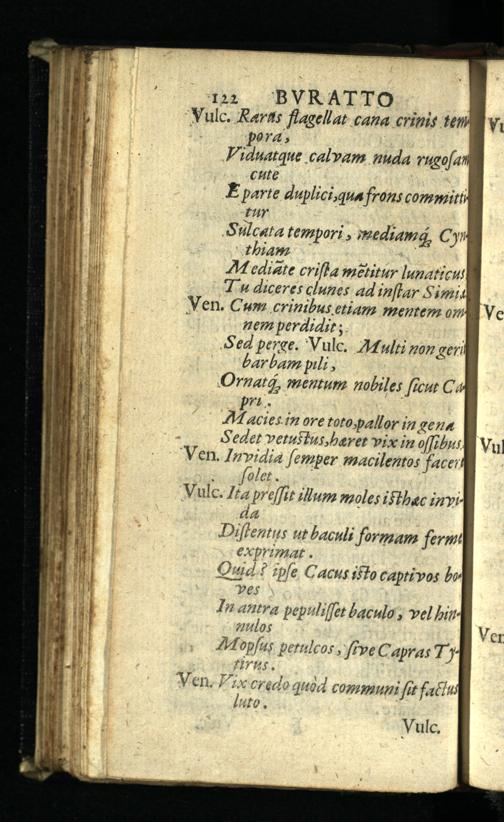 122 BVRATTO
Vulc. Raras flagellat cana crinis tem
pora,
Viduatque calvam nuda rugoſam
cute
E parte duplici, qua frons committi
tur
Sulcata tempori, mediamq́; Cyn
thiam
Mediãte criſta mẽtitur lunaticus
Tu diceres clunes ad inſtar Simiæ
Ven. Cum crinibus etiam mentem om
nem perdidit;
Sed perge. Vulc. Multi non geri
barbam pili,
Ornatq́; mentum nobiles ſicut Ca
pri.
Macies in ore toto, pallor in gena
Sedet vetuſtus, hæret vix in oſſibus.
Ven. Invidia ſemper macilentos facere
ſolet.
Vulc. Ita preſſit illum moles iſthæc invi-
da
Diſtentus ut baculi formam ferme
exprimat.
Quid? ipſe Cacus iſto captivos bo-
ves
In antra pepuliſſet baculo, vel hin-
nulos
Mopſus petulcos, ſive Capras Ty-
tirus.
Ven. Vix credo quòd communi ſit factus
luto.
Vulc.
Vu
Ve
Vul
Ven